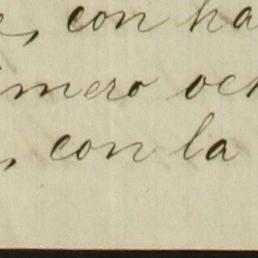 , con ha
mero och
, con la